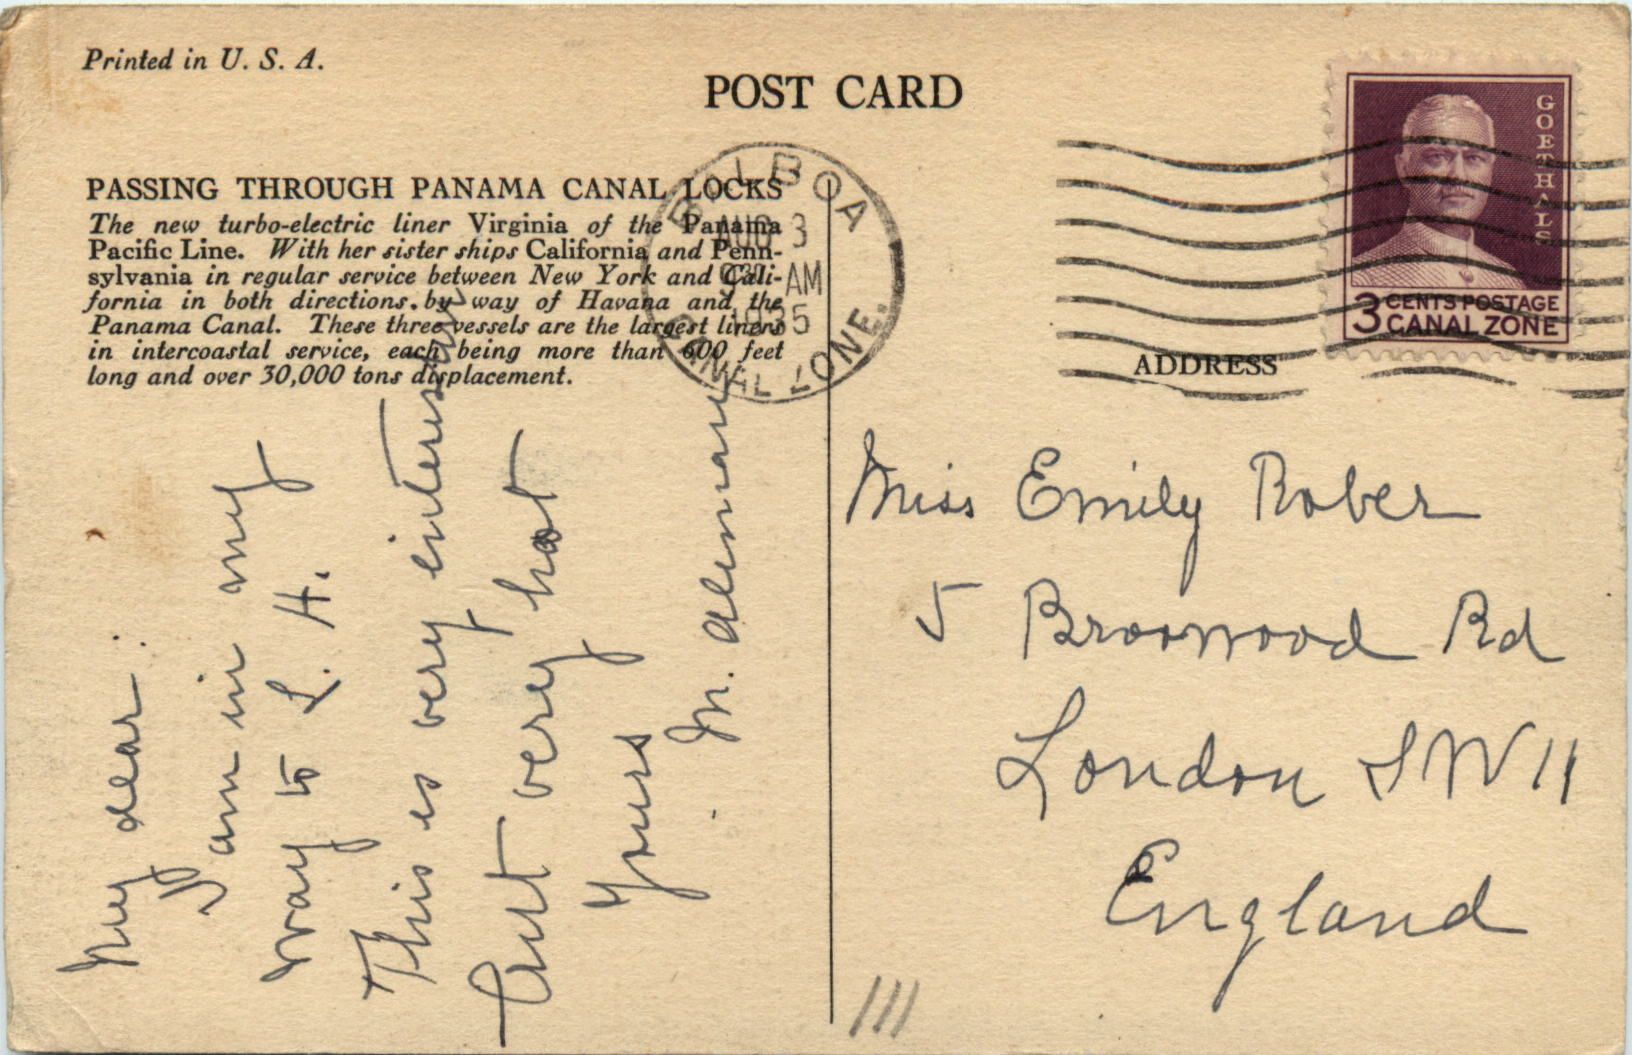 Printed in U. S. A.
POST CARD
PASSING THROUGH PANAMA CANAL LOCKS
The new turbo-electric liner Virginia of the Panama
Pacific Line. With her sister ships California and Penn-
sylvania in regular service between New York and Cali-
fornia in both directions, by way of Havana and the
Panama Canal. These three vessels are the largest liners
in intercoastal service, each being more than 600 feet
long and over 30,000 tons displacement.
BALBOA
AUG 3
AM
1935
CANAL ZONE.
GOETHALS
3 CENTS POSTAGE
CANAL ZONE
ADDRESS
My dear:
I am in my
way to L. A.
This is very interesting
but very hot
Yours
M.
Miss Emily Rober
5 Broowood Rd
London SW 11
England
111